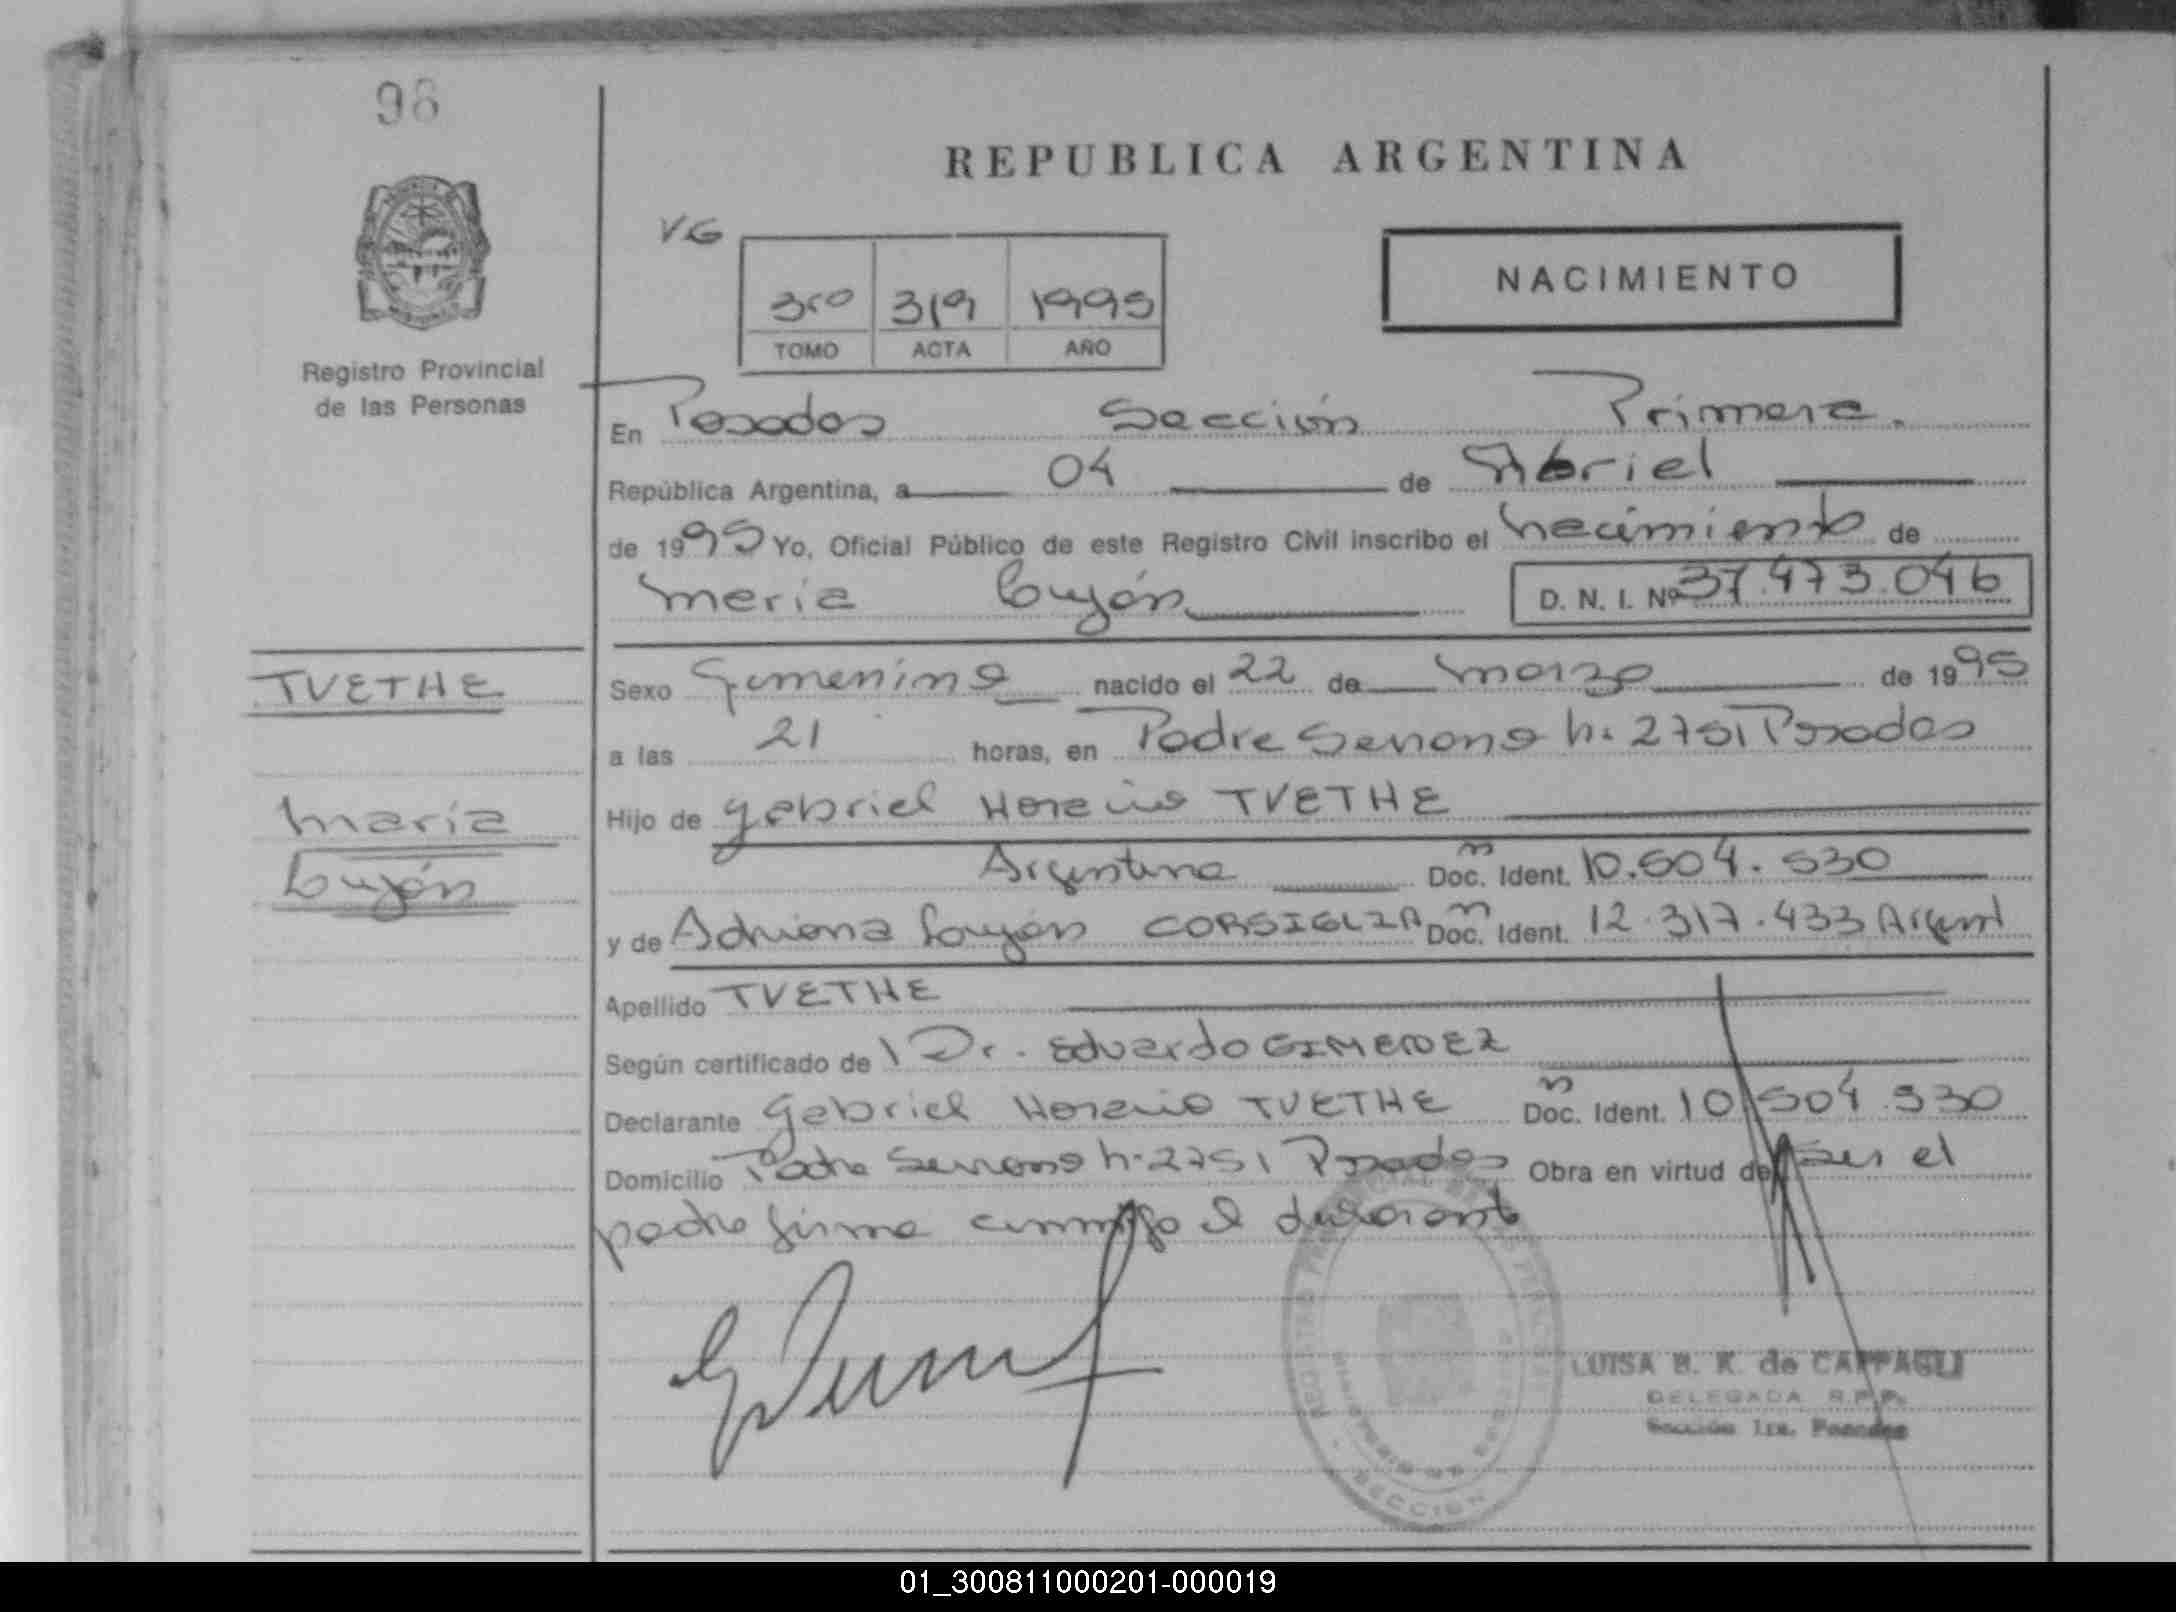 98
REPUBLICA ARGENTINA
VG
3ro 319 1995
TOMO ACTA AÑO
NACIMIENTO
Registro Provincial
de las Personas
En Posadas Sección Primera.
República Argentina, a 04 de Abriel
de 1995 Yo, Oficial Público de este Registro Civil inscribo el nacimiento de
María Luján D. N. I. Nº 37.473.046
TVETHE
María
Luján
Sexo Femenino nacido el 22 de Marzo de 1995
a las 21 horas, en Padre Serrano n. 2751 Posadas
Hijo de Gabriel Horacio TVETHE
Argentina Doc. Ident. 10.504.530
y de Adriana Luján CORSIGLIA Doc. Ident. 12.317.433 Argent
Apellido TVETHE
Según certificado de Dr. Eduardo GIMENEZ
Declarante Gabriel Horacio TVETHE Doc. Ident. 10 504.530
Domicilio Padre Serrano n. 2751 Posadas Obra en virtud de ser el
padre firma conmigo el declarante
LUISA B. K. de CAPPAGLI
DELEGADA R.P.P.
Sección 1ra. Posadas
SECCION
01_300811000201-000019